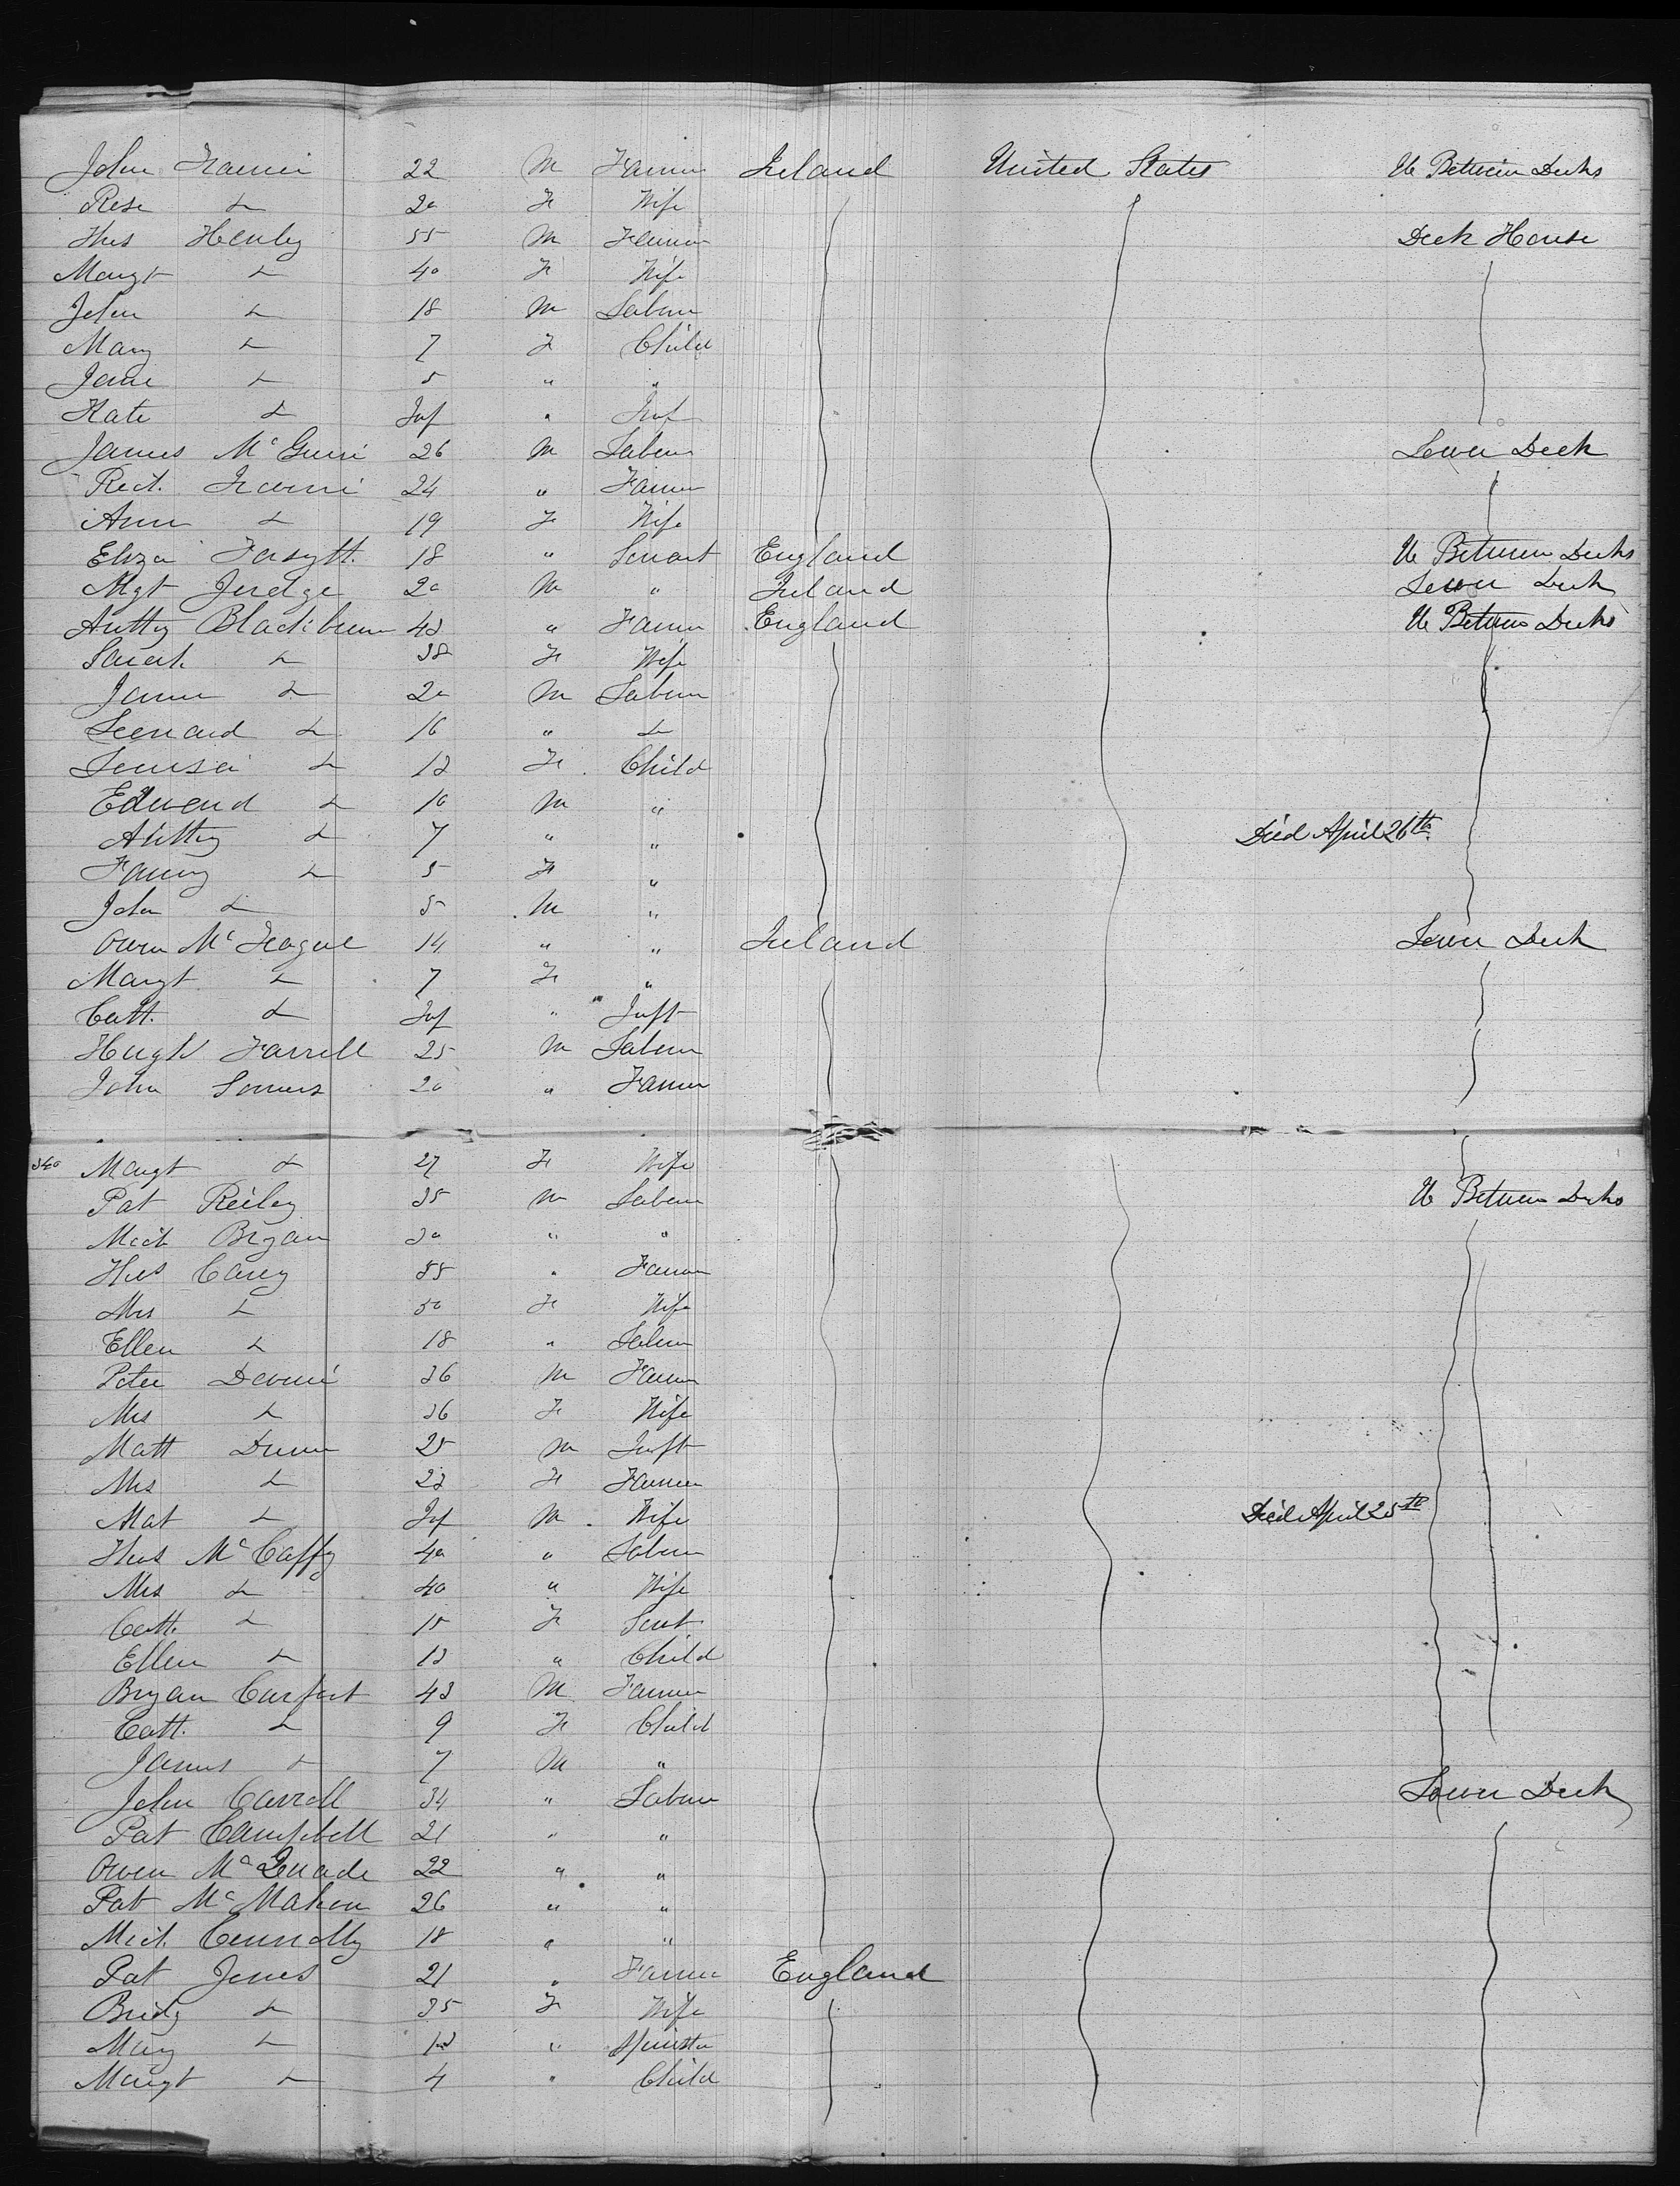 John 22 M Farmer Ireland United States U Between Decks
Rose Do 20 F Wife
Thos Henley 55 M Farmer Deck House
Margt Do 40 F Wife
John Do 18 M Labour
Mary Do 7 F Child
Jane Do 5 " "
Kate Do Inf " Inf
James McGuire 26 M Labour Lower Deck
24 " Farmer
Ann Do 19 F Wife
Eliza Forsyth 18 " Servant England U Between Decks
Mgt Judge 20 M " Ireland Lower Deck
Anthy Blackburn 43 " Farmer England U Between Decks
Sarah Do 38 F Wife
James Do 20 M Labour
Leonard Do 16 " Do
Louisa Do 13 F Child
Edward Do 10 M "
Anthy Do 7 " " Died April 26th
Fanny Do 5 F "
John Do 5 M "
Owen McTeague 14 " " Ireland Lower Deck
Margt Do 7 F "
Cath. Do Inf " Inft
Hugh Farrell 25 M Labour
John Somers 20 " Farmer
340 Margt Do 27 F Wife
Pat Reiley 35 M Labour U Between Decks
Mich Bryan 30 " "
Thos Carey 55 " Farmer
Mrs Do 50 F Wife
Ellen Do 18 " Labour
Peter 36 M Farmer
Mrs Do 36 F Wife
Matt Dunn 25 M Inft
Mrs Do 23 F Farmer
Mat Do Inf M Wife Died April 25th
Thos McCaffy 40 " Labour
Mrs Do 40 " Wife
Cath. Do 15 F Sert
Ellen Do 13 " Child
Bryan 43 M Farmer
Cath. Do 9 F Child
James Do 7 M "
John Carroll 34 " Labour Lower Deck
Pat Campbell 21 " "
Owen McQuade 22 " "
Pat McMahon 26 " "
Mich. Connolly 18 " "
Pat Jones 21 " Farmer England
Bridg Do 35 F Wife
Mary Do " Spinster
Margt Do 4 " Child